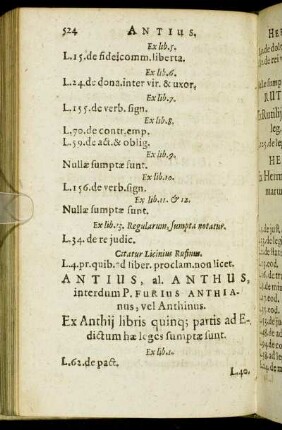 524 ANTIUS,
Ex lib.5.
L.15.de fideicomm.liberta.
Ex lib.6.
L.24.de dona.inter vir. & uxor,
Ex lib.7.
L.155.de verb.sign.
Ex lib.8.
L.70.de contr.emp.
L.59.de act.& oblig.
Ex lib.9.
Nullæ sumptæ sunt.
Ex lib.10.
L.156.de verb.sign.
Ex lib.11. & 12.
Nullæ sumptæ sunt.
Ex lib.13. Regularum, sumpta notatur.
L.34.de re judic.
Citatur Licinius Rufinus.
L.4.pr.quib.ad liber. proclam.non licet.
ANTIUS, al. ANTHUS,
interdum P. FURIUS ANTHIA-
nus, vel Anthinus.
Ex Anthij libris quinqꝫ partis ad E-
dictum hæ leges sumptæ sunt.
Ex lib.1.
L.62.de pact.
L.40.